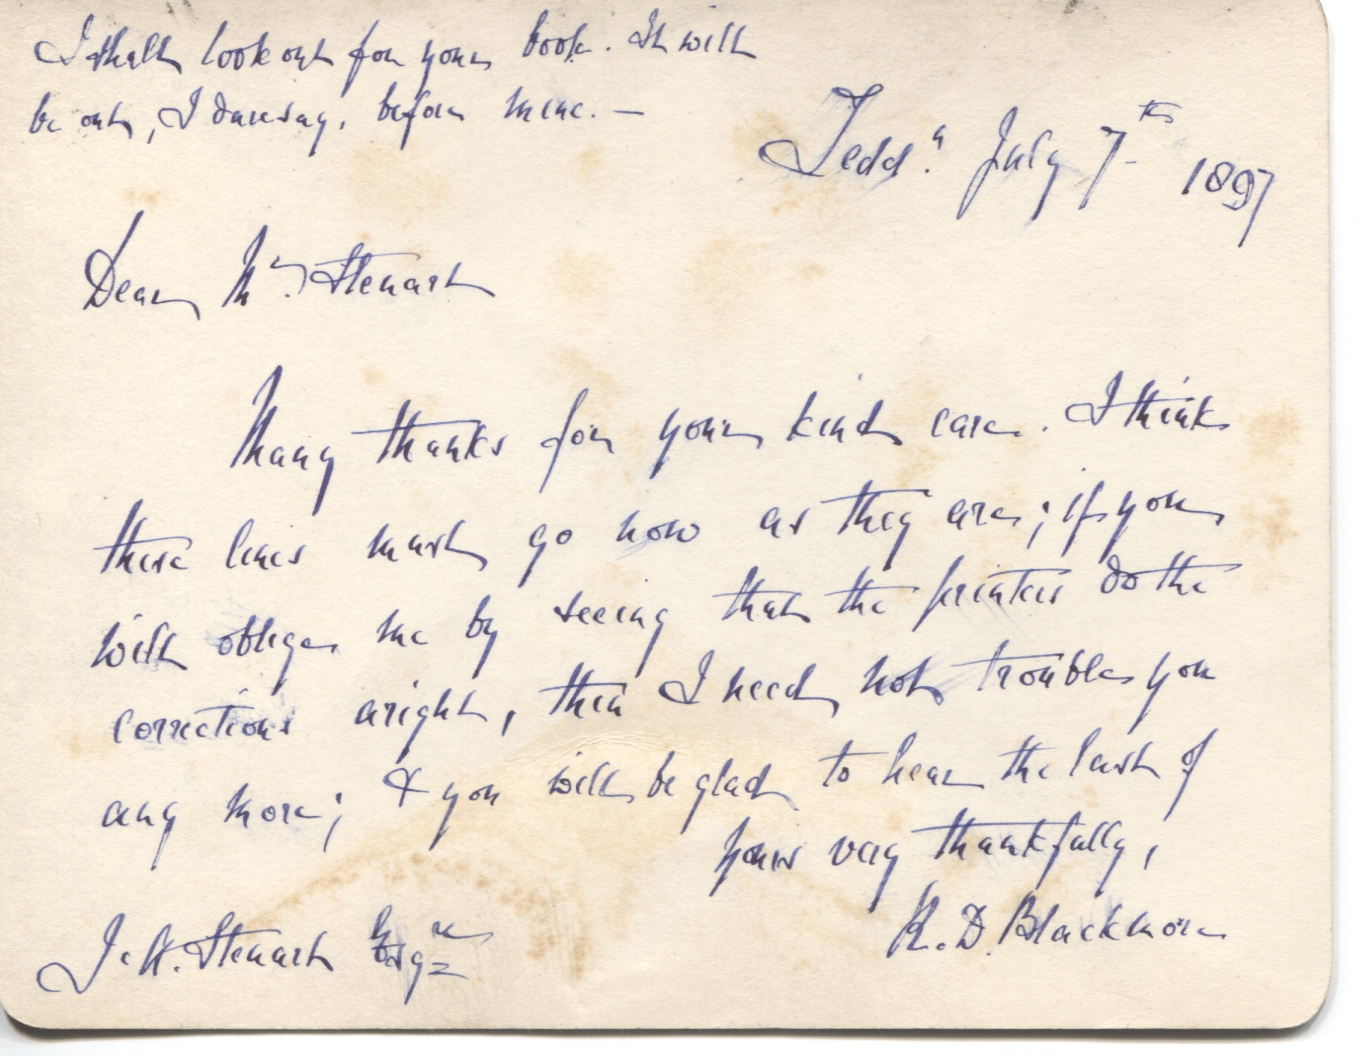 I shall look out for your book. It will
be out, I daresay, before mine. —
Tedd.n July 7th 1897
Dear Mr. Steuart
Many thanks for your kind care. I think
these lines must go now as they are; if you
will oblige me by seeing that the printers do the
corrections aright, then I need not trouble you
any more; & you will be glad to hear the last of
Yours very thankfully,
R. D. Blackmore
J. A. Steuart Esqre